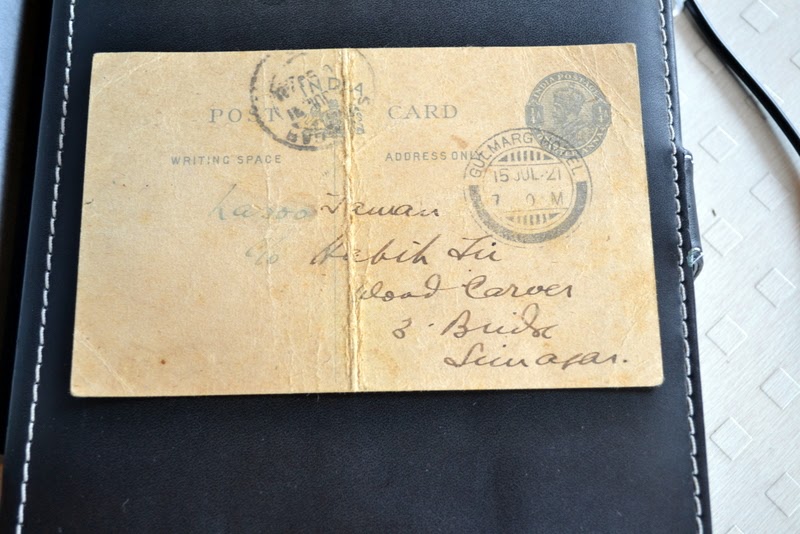 INDIA
POST CARD
INDIA POSTAGE
WRITING SPACE
ADDRESS ONLY
GULMARG HOTEL
15 JUL. 21
7 0 M
Rasoo Taman
c/o Habib Jii
Wood Carver
3. Bridg
Srinagar.